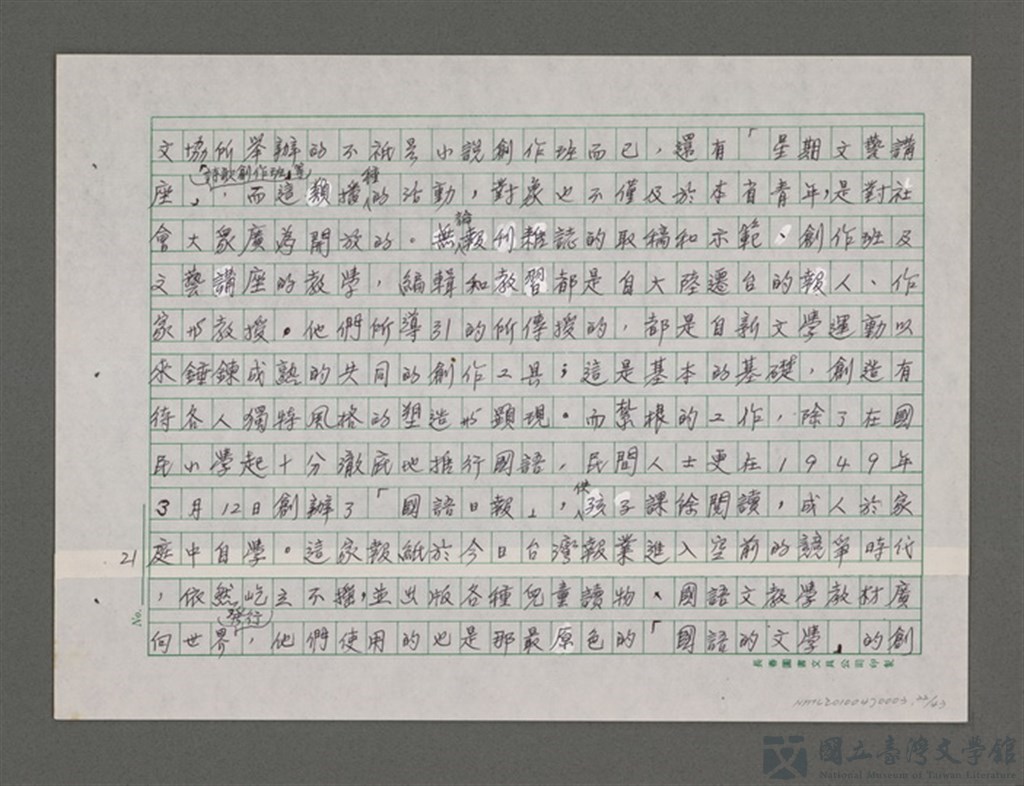 文協所舉辦的不祇是小說創作班而已，還有「星期文藝講
座」、「詩歌創作班」等，而這類播種的活動，對象也不僅及於本省青年，是對社
會大眾廣為開放的。無論報刊雜誌的取稿和示範、創作班及
文藝講座的教學，編輯和教習都是自大陸遷台的報人、作
家與教授。他們所導引的所傳授的，都是自新文學運動以
來錘鍊成熟的共同的創作工具；這是基本的基礎，創造有
待各人獨特風格的塑造與顯現。而紮根的工作，除了在國
民小學起十分澈底地推行國語，民間人士更在1949年
3月12日創辦了「國語日報」，供孩子課餘閱讀，成人於家
庭中自學。這家報紙於今日台灣報業進入空前的競爭時代
，依然屹立不搖，並出版各種兒童讀物、國語文教學教材廣
向世界發行，他們使用的也是那最原色的「國語的文學」的創
21
No.
長春圖書文具公司印製
NMTL20100470003, 22/43
國立臺灣文學館
National Museum of Taiwan Literature